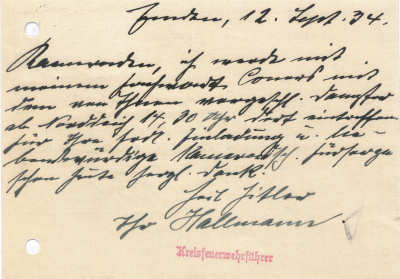 Emden, 12. Sept. 34.
Kameraden, ich werde mit
meinem Fachwart Coners mit
dem von Ihnen vorgeschl. Dampfer
ab Norddeich 14.00 Uhr dort eintreffen
für Ihre frdl. Einladung u. lie-
benswürdige kameradsch. Fürsorge
schon heute herzl. Dank.
Heil Hitler
Ihr Hallmann
Kreisfeuerwehrführer